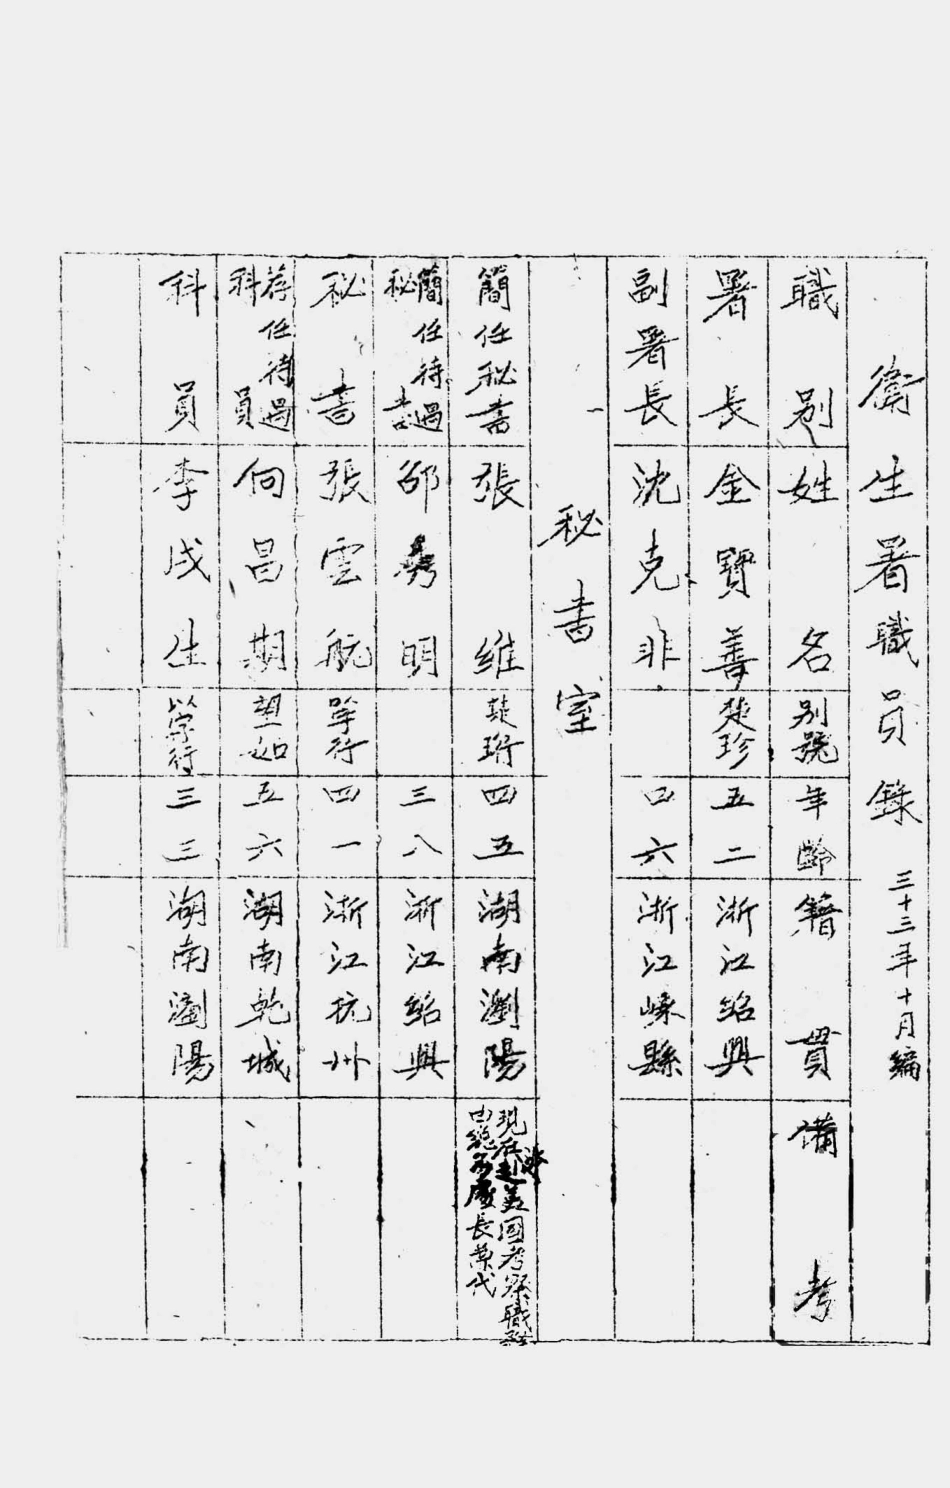 衛生署職員錄 三十三年十月編
職別 姓名 別號 年齡 籍貫 備考
署長 金寶善 楚珍 五二 浙江紹興
副署長 沈克非 四六 浙江嵊縣
秘書室
簡任秘書 張維 楚珩 四五 湖南瀏陽 現在赴美國考察職務
由總務處長兼代
簡任待遇秘書 邵秀明 三八 浙江紹興
秘書 張雲航 以字行 四一 浙江杭州
荐任待遇科員 向昌期 望如 五六 湖南乾城
科員 李戌生 以字行 三三 湖南瀏陽